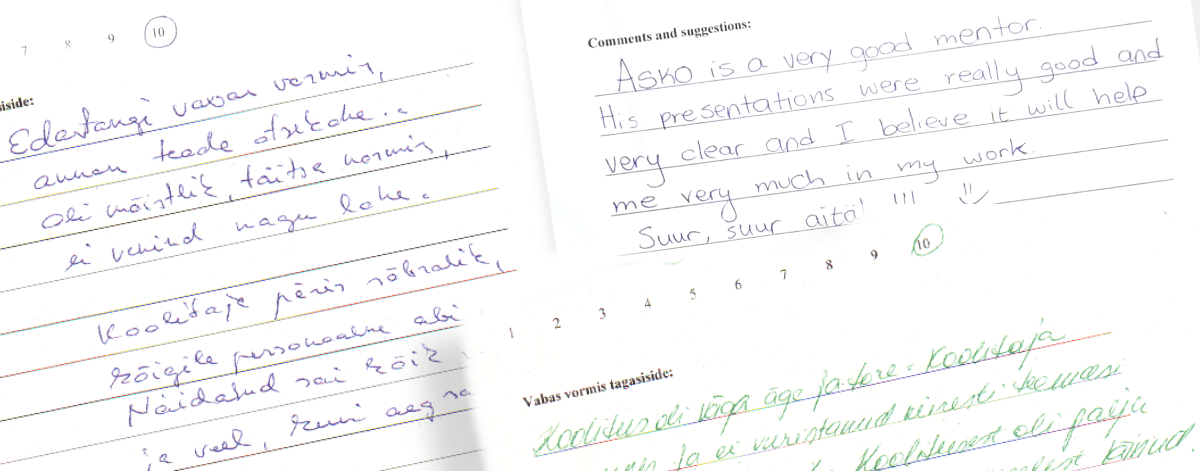 7 8 9 10
iside:
Edastangi vabas vormis,
annan teada otsekohe..
Oli mõistlik, täitsa normis,
ei veninud nagu lohe.
Koolitaja päris sõbralik,
kõigile personaalne abi
Näidatud sai kõik
ja veel, kuni aeg sa
Comments and suggestions:
Asko is a very good mentor.
His presentations were really good and
very clear and I believe it will help
me very much in my work.
Suur, suur aitä! !!!
1 2 3 4 5 6 7 8 9 10
Vabas vormis tagasiside:
Koolitus oli väga äge ja tore. Koolitaja
ja ei vuristanud kiiresti teemasi
Koolitusest oli palju
käinud.